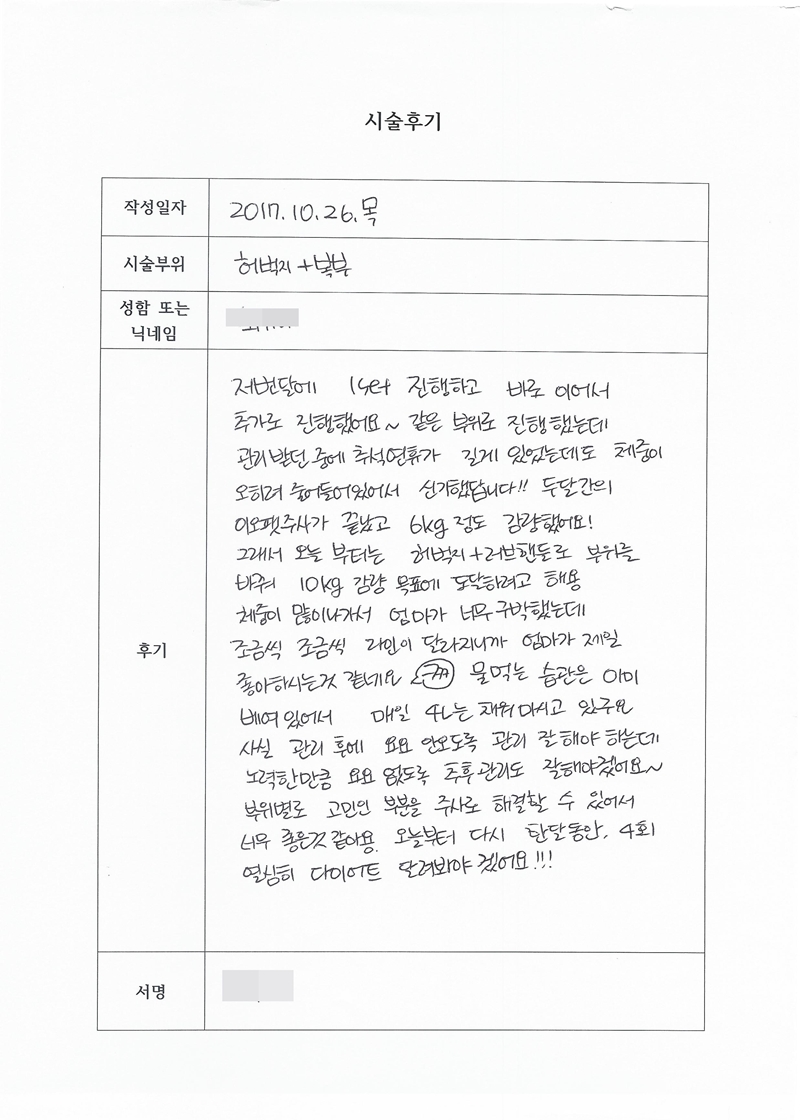 시술후기
작성일자 2017.10.26.목
시술부위 허벅지+복부
성함 또는
닉네임
후기
저번달에 1set 진행하고 바로 이어서
추가로 진행했어요~ 같은 부위로 진행했는데
관리받던 중에 추석연휴가 길게 있었는데도 체중이
오히려 줄어들어있어서 신기했답니다!! 두달간의
이오팻주사가 끝났고 6kg 정도 감량했어요!
그래서 오늘 부터는 허벅지+러브핸들로 부위를
바꿔 10kg 감량 목표에 도달하려고 해용
체중이 많이나가서 엄마가 너무 구박했는데
조금씩 조금씩 라인이 달라지니까 엄마가 제일
좋아하시는것 같네요 물먹는 습관은 이미
베여있어서 매일 4L는 채워마시고 있구요
사실 관리 후에 요요 안오도록 관리 잘해야 하는데
노력한만큼 요요 없도록 추후관리도 잘해야겠어요~
부위별로 고민인 부분을 주사로 해결할 수 있어서
너무 좋은것 같아용. 오늘부터 다시 한달동안, 4회
열심히 다이어트 달려봐야겠어요!!!
서명